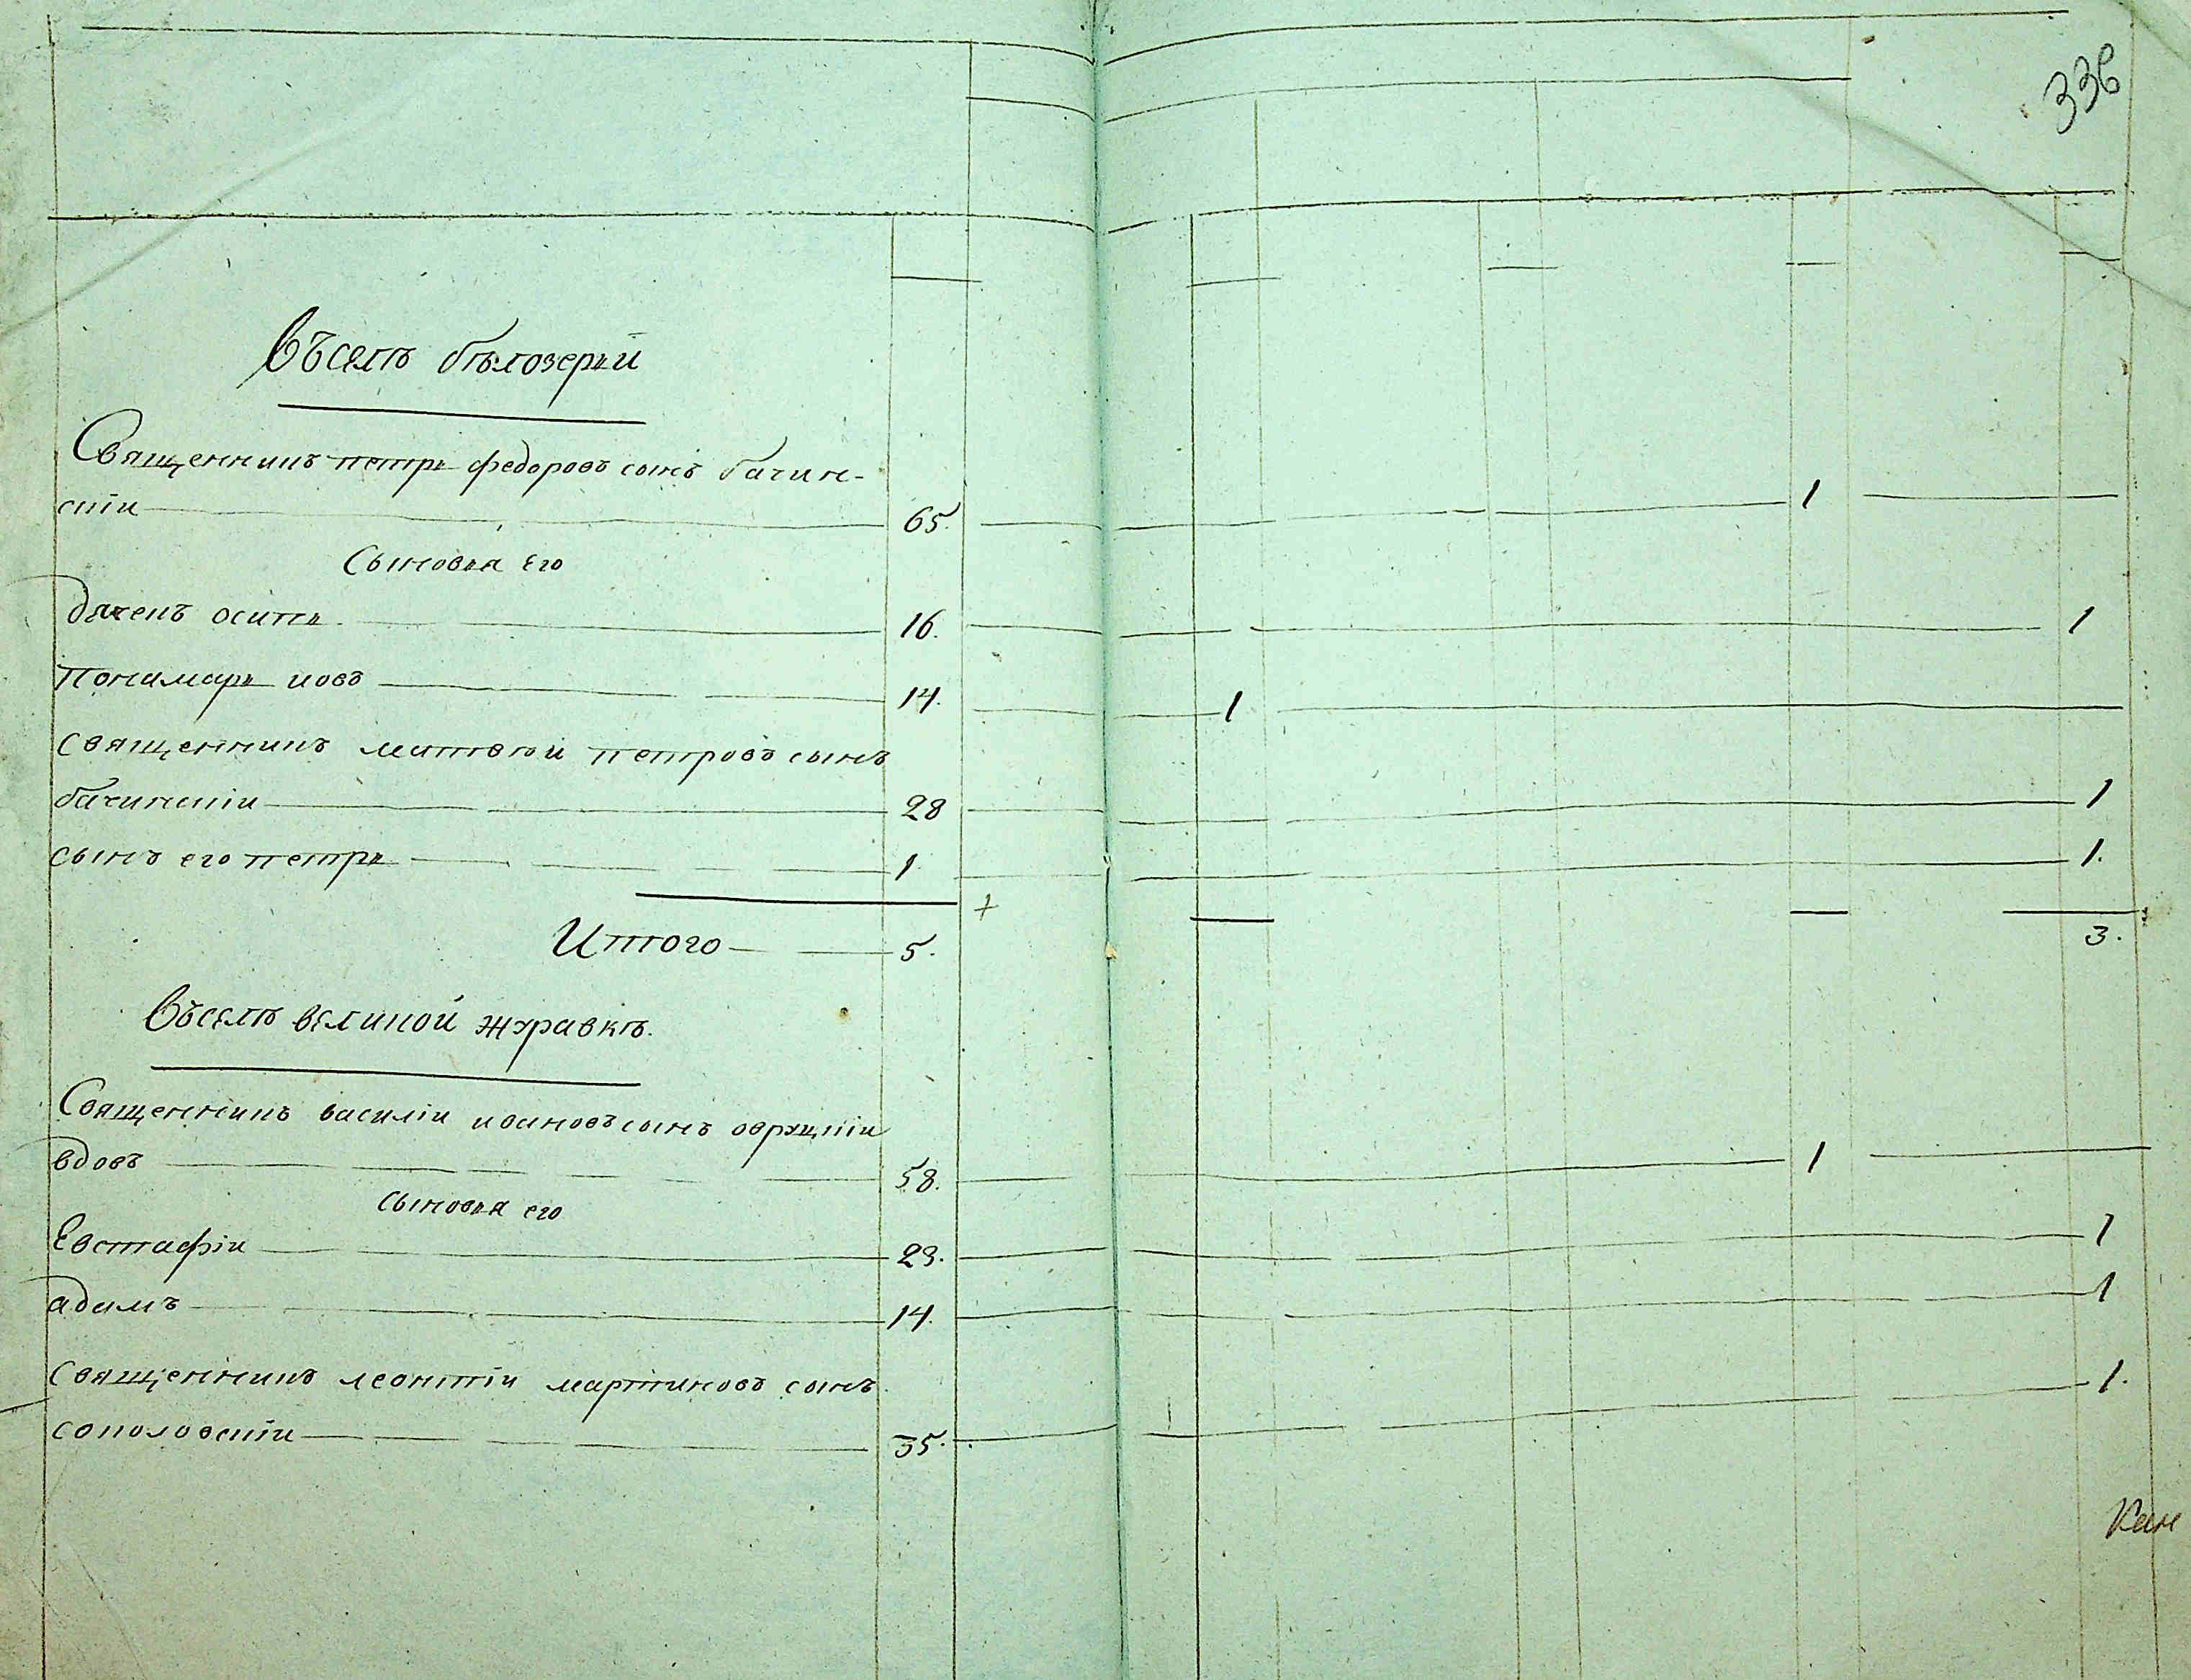 336
Въселѣ бѣлозерьи
Священникъ петръ федоровъ сынъ бачин-
скіи 65. 1
Сыновья его
дячекъ осипъ 16. 1
пономарь иовъ 14. 1
священникъ матвѣй петровъ сынъ
бачинскіи 28 1
сынъ его петръ 1. 1.
Итого 5. 3.
Въселѣ великой журавкѣ.
Священникъ василіи ивановъ сынъ овруцкіи
вдовъ 58. 1
сыновья его
Евстафіи 23. 1
адамъ 14. 1
священникъ леонтіи мартиновъ сынъ
соколовскіи 35. 1.